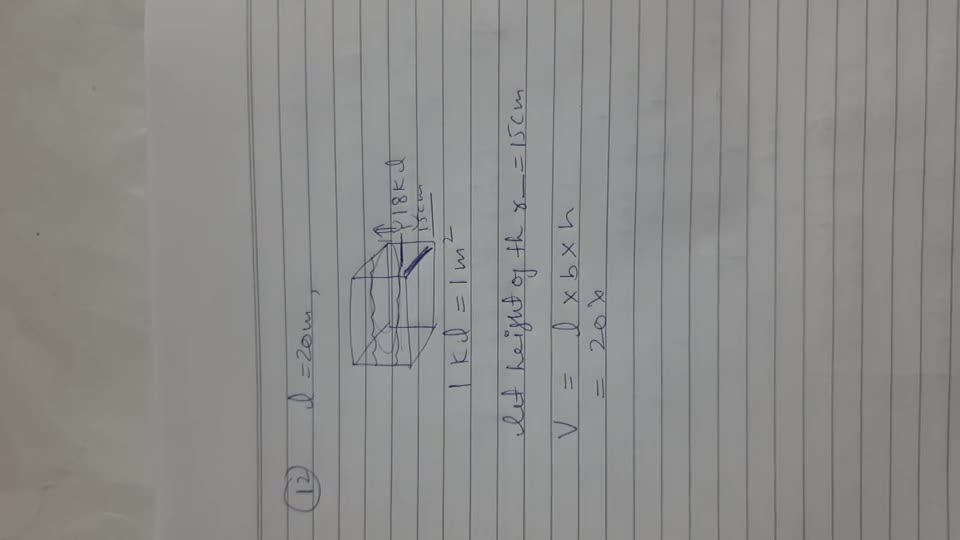 12 l = 20m,
18kl
15cm
1 kl = 1m²
let height of th r = 15cm
V = l x b x h
= 20 x